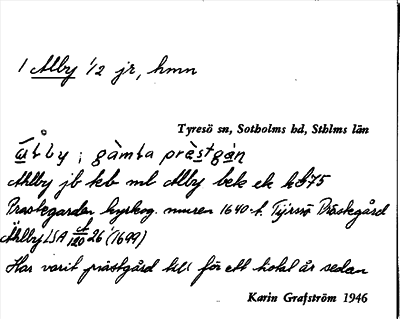 1 Alby 1/2 jr, hmn
Tyresö sn, Sotholms hd, Sthlms län
gamla prästgån
Ahlby jb kb ml Alby bek ek h S75
Prästegården kyrkog. muren 1640-t. Tyresö Prästegård
Åhlby LSA 26 (1699)
Har varit prästgård till för ett hotal år sedan
Karin Grafström 1946